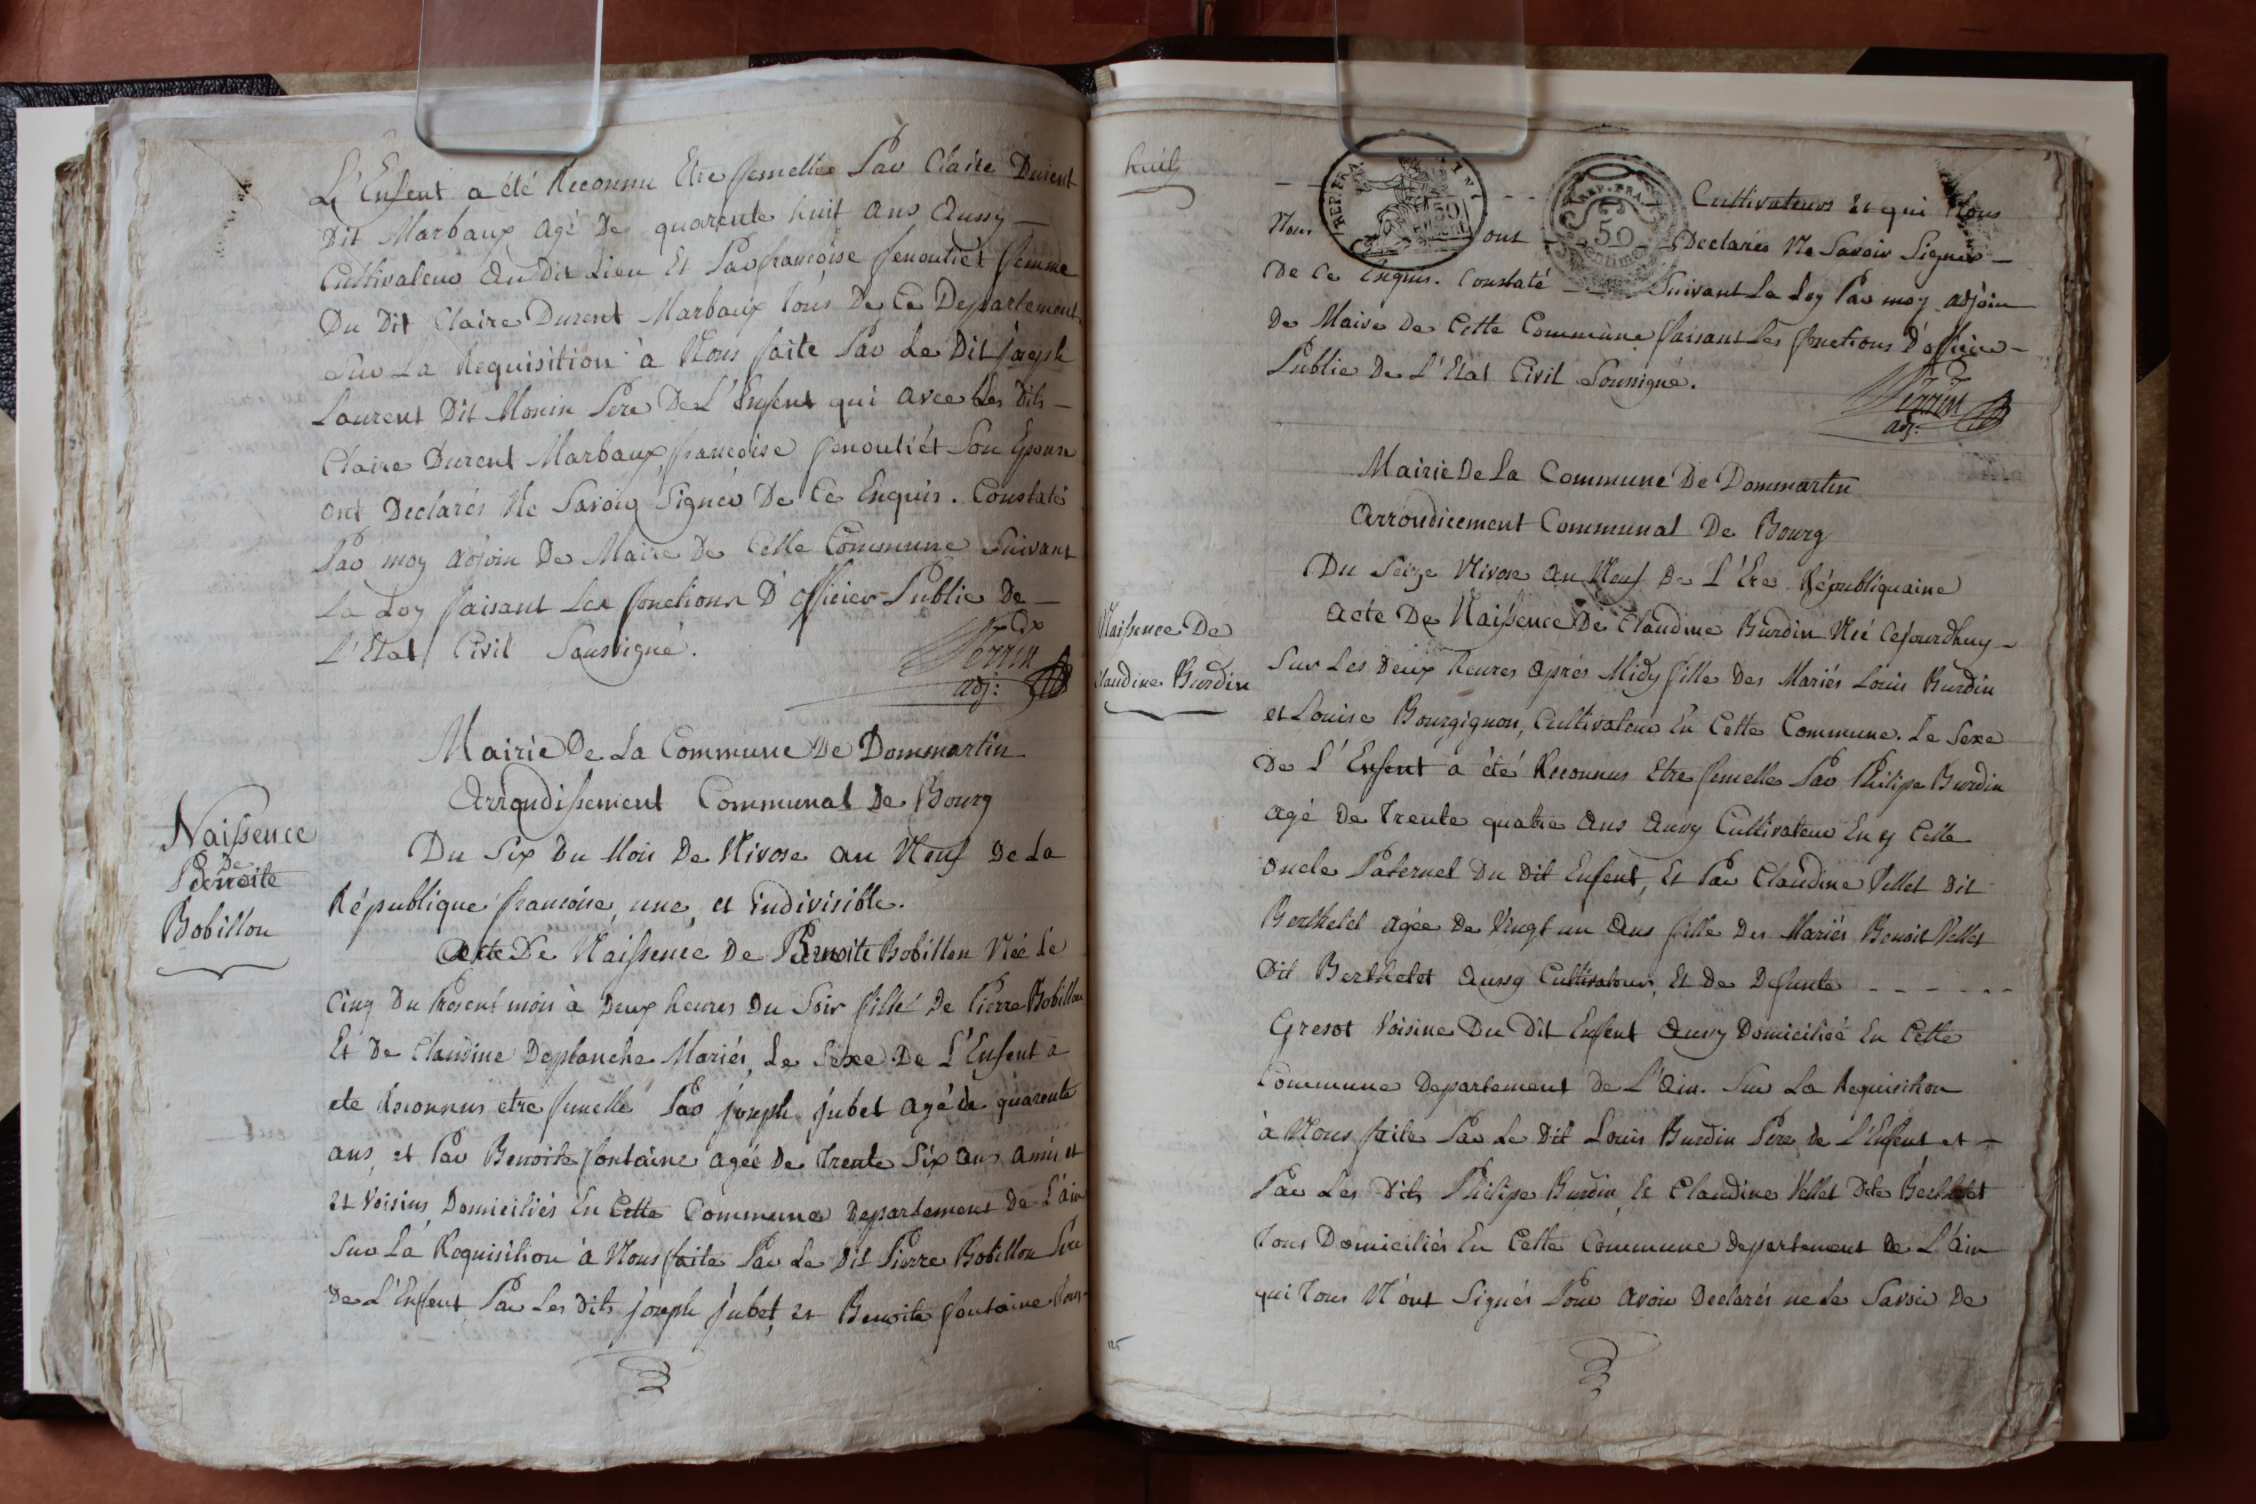 L'Enfent a été Reconnu Etre femelle Par Claire Durent
Dit Marbaux agé De quarente huit ans Aussy
Cultivateur Audit Lieu Et Par françoise fenoutiet femme
Du Dit Claire Durent Marbaux tous De Ce Departement.
Sur La Requisition à Nous faite Par Le Dit joseph
Laurent Dit Monin Pere De L'Enfent qui avec Les Dits
Claire Durent Marbaux, françoise fenoutiét Son Epouse
ont Declarés Ne Savoir Signer De Ce Enquis. Constaté
Par moy adjoin De Maire De Cette Commune Suivant
La Loy faisant Les fonctions D'officier Public De
L'Etat Civil Soussigné.
Perrin
adj:
Mairie De La Commune De Dommartin
Arrondissement Communal De Bourg
Du Six Du Mois De Nivose an Neuf De La
République françoise, une, et indivisible.
Naissence
De
Benoite
Bobillon
Acte De Naissence De Benoite Bobillon Née Le
Cinq Du Present mois à Deux heures Du Soir fille De Pierre Bobillon
Et De Claudine Deplanche Mariés, Le Sexe De L'Enfent a
ete Reconnus etre femelle Par joseph jubet agé de quarente
ans, et Par Benoite fontaine agée De trente Six ans amis et
et Voisins Domiciliés En Cette Commune Departement De L'ain
Sur La Requisition à Nous faite Par Le Dit Pierre Bobillon Pere
De L'Enfent Par Les Dits joseph jubet, et Benoite fontaine tous
huit
REP. FRA.
50
REP. FRA.
50
Centime
Cultivateurs Et qui Nous
Nous ont Declarés Ne Savoir Signer
De Ce Enquis. Constaté Suivant La Loy Par moy adjoin
De Maire De Cette Commune faisant Les fonctions D'officier
Public De L'Etat Civil Soussigné.
Perrin
adj:
Mairie De La Commune De Dommartin
Arrondicement Communal De Bourg
Du Seize Nivose an Neuf De L'Ere Républiquaine
Naissence De
Claudine Burdin
Acte De Naissence De Claudine Burdin Née Cejourdhuy
Sur Les Deux heures aprés Midy fille Des Mariés Louis Burdin
et Louise Bourgignon, Cultivateur En Cette Commune. Le Sexe
De L'Enfent a été Reconnus Etre femelle Par Philipe Burdin
agé De trente quatre ans aussy Cultivateur En Cette
oncle Paternel Du Dit Enfent, Et Par Claudine Vellet Dit
Berthelet agée De Vingt un ans fille Des Mariés Benoit Vellet
Dit Berthelet aussy Cultivateur, Et De Defunte
Gresot Voisine Du Dit Enfent aussy Domiciliée En Cette
Commune Departement De L'ain. Sur La Requisition
à Nous faite Par Le Dit Louis Burdin Pere de L'Enfent et
Par Les Dits Philipe Burdin, Et Claudine Vellet Dite Berthelet
tous Domiciliés En Cette Commune departement De L'ain
qui tous N'ont Signés Pour avoir Declarés ne Le Savoir De